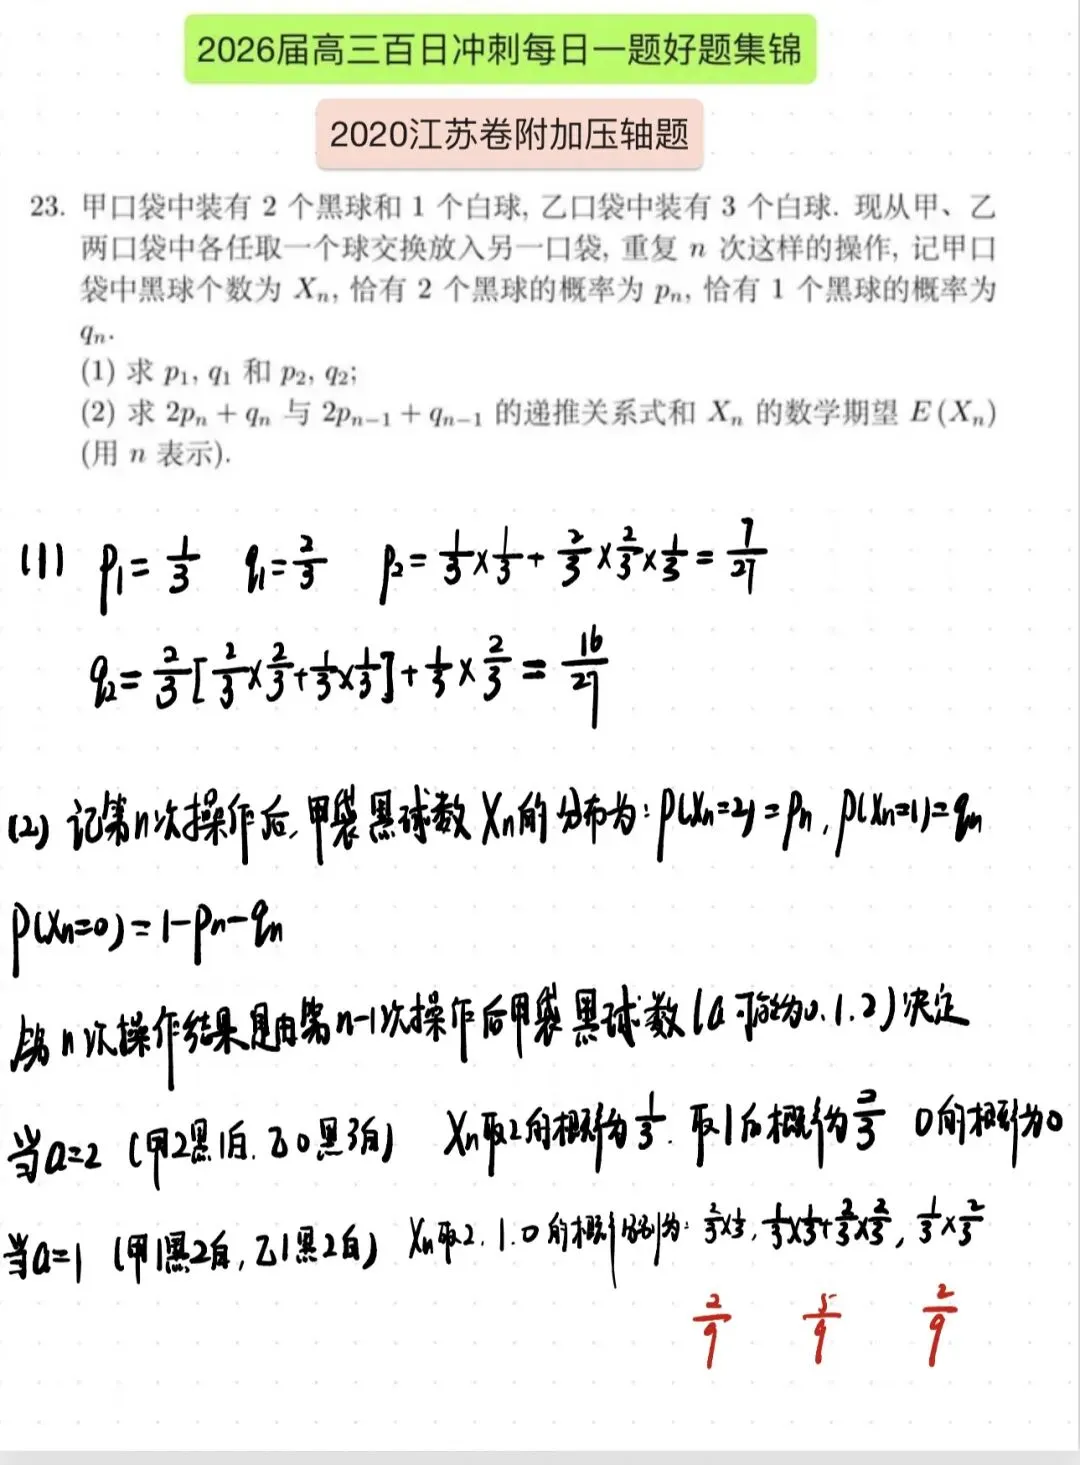 2026届高三百日冲刺每日一题好题集锦
2020江苏卷附加压轴题
23. 甲口袋中装有 2 个黑球和 1 个白球, 乙口袋中装有 3 个白球. 现从甲、乙
两口袋中各任取一个球交换放入另一口袋, 重复 n 次这样的操作, 记甲口
袋中黑球个数为 Xₙ, 恰有 2 个黑球的概率为 pₙ, 恰有 1 个黑球的概率为
qₙ.
(1) 求 p₁, q₁ 和 p₂, q₂;
(2) 求 2pₙ + qₙ 与 2pₙ₋₁ + qₙ₋₁ 的递推关系式和 Xₙ 的数学期望 E (Xₙ)
(用 n 表示).
(1) p₁=1/3 q₁=2/3 p₂=1/3×1/3+2/3×2/3×1/3=7/27
q₂=2/3[2/3×2/3+1/3×1/3]+1/3×2/3=16/27
(2) 记第n次操作后,甲袋黑球数Xₙ的分布为:P(Xₙ=2)=pₙ,P(Xₙ=1)=qₙ
P(Xₙ=0)=1-pₙ-qₙ
第n次操作结果是由第n-1次操作后甲袋黑球数(a可能为0.1.2)决定
当a=2 (甲2黑1白.乙0黑3白) Xₙ取2的概率为1/3.取1的概率为2/3 0的概率为0
当a=1 (甲1黑2白,乙1黑2白) Xₙ取2.1.0的概率分别为:2/3×1/3,1/3×1/3+2/3×2/3,1/3×2/3
2/9 5/9 2/9